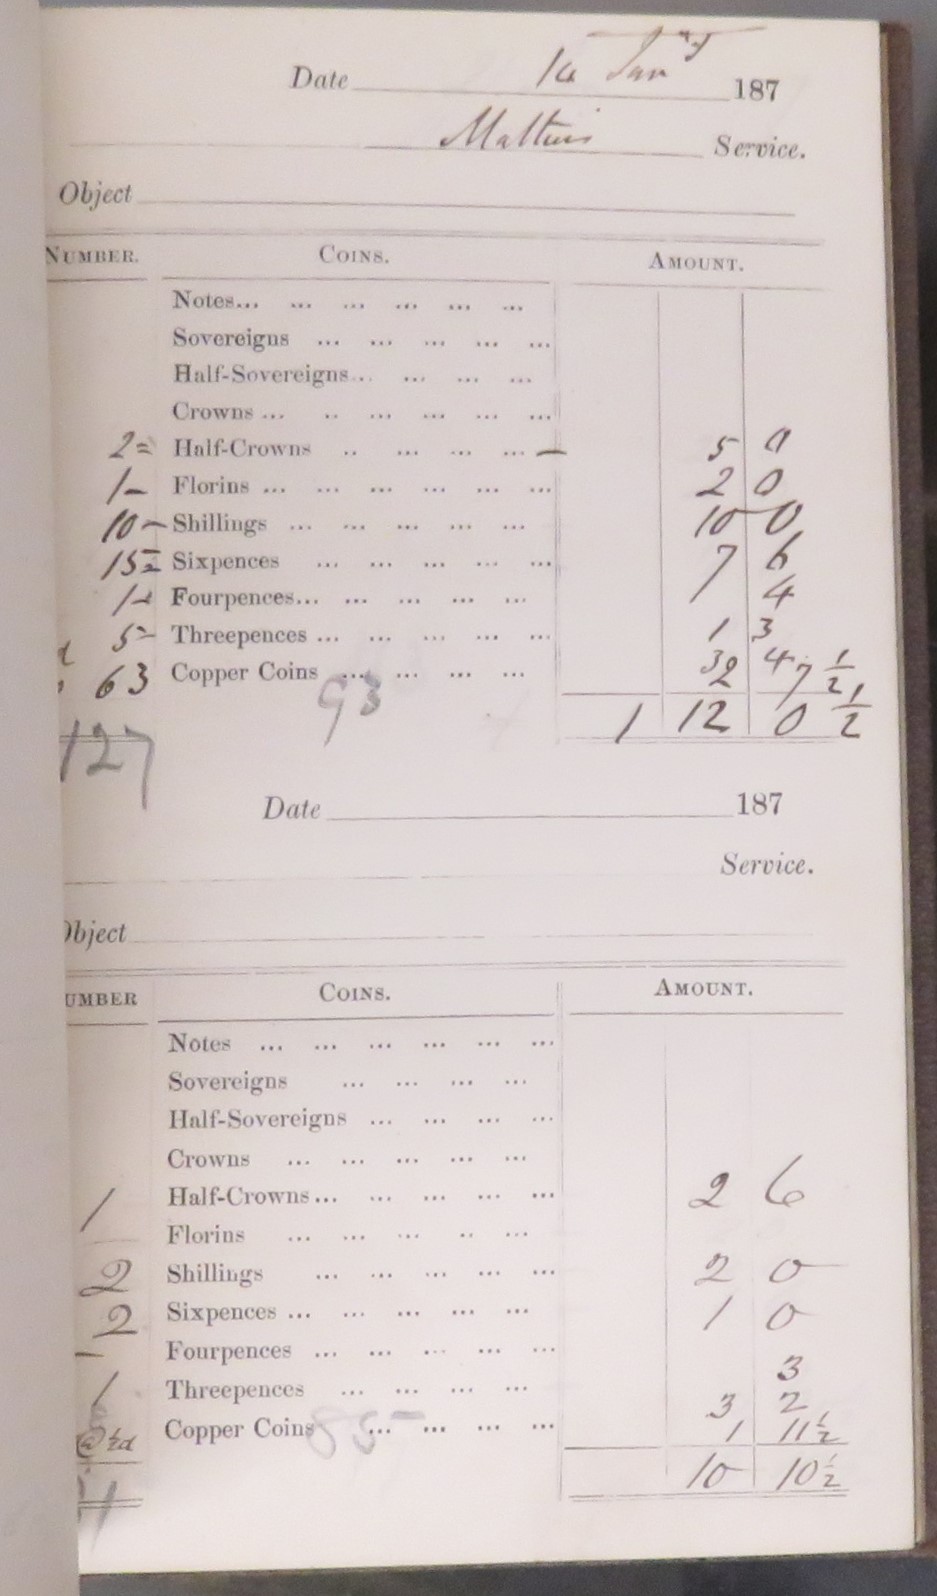 Date 14 Jany 187
Mattins Service.
Object
NUMBER. COINS. AMOUNT.
Notes... ... ... ... ... ...
Sovereigns ... ... ... ... ...
Half-Sovereigns... ... ... ...
Crowns ... .. ... ... ... ...
2= Half-Crowns .. ... ... ... — 5 0
1- Florins ... ... ... ... ... ... 2 0
10- Shillings ... ... ... ... ... 10 0
15= Sixpences ... ... ... ... ... 7 6
1- Fourpences... ... ... ... ... 4
5- Threepences ... ... ... ... ... 1 3
63 Copper Coins ... ... ... ... 3 4
93 2 7 ½
1 12 0 ½
127
Date 187
Service.
Object
NUMBER COINS. AMOUNT.
Notes ... ... ... ... ... ...
Sovereigns ... ... ... ...
Half-Sovereigns ... ... ... ...
Crowns ... ... ... ... ...
1 Half-Crowns... ... ... ... ... 2 6
Florins ... ... ... .. ...
2 Shillings ... ... ... ... ... 2 0
2 Sixpences ... ... ... ... ... 1 0
Fourpences ... ... ... ... ...
1 Threepences ... ... ... ... 3
@ ½d Copper Coins ... ... ... ... 3 2
85 1 11½
10 10½